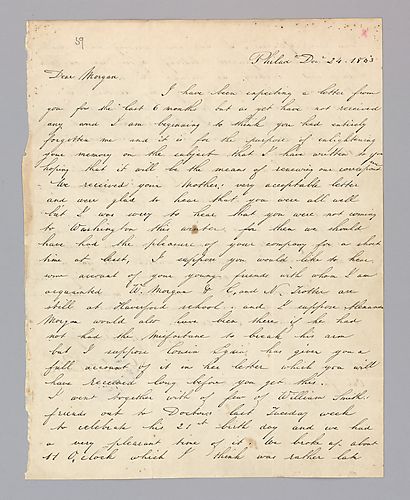 59
Philad Dec 24. 1853
Dear Morgan.
I have been expecting a letter from
you for the last 6 months but as yet have not received
any and I am beginning to think you had entirely
forgotten me and it is for the purpose of enlightening
your memory on the subject that I have written to you
hoping that it will be the means of renewing our correspond
We received your Mother's very acceptable letter
and were glad to hear that you were all well
but I was sorry to hear that you were not coming
to Washington this winter for then we should
have had the pleasure of your company for a short
time at least, I suppose you would like to hear
some account of your young friends with whom I am
acquainted W. Morgan & C. and N. Trotter are
still at Haverford school, and I suppose
Morgan would also have been there if he had
not had the misfortune to break his arm
but I suppose Cousin Lydia has given you a
full account of it in her letter which you will
have received long before you get this.
I went together with of few of William Smith's
friends out to last Tuesday week
to celebrate his 21st birth day and we had
a very pleasant time of it. We broke up about
11 O,clock which I think was rather late